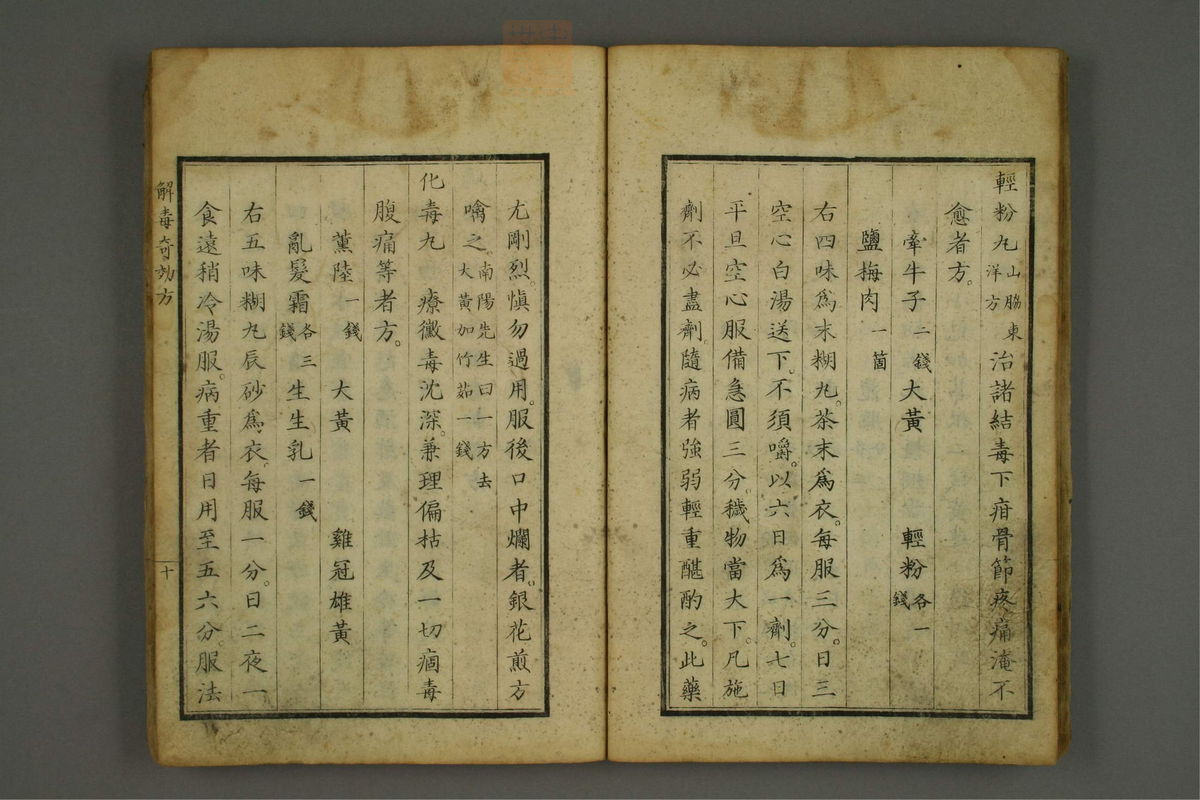 輕粉丸山脇東洋方治諸結毒下疳骨節疼痛淹不
愈者方。
牽牛子二錢大黃 輕粉各一錢
鹽梅肉一箇
右四味爲末糊丸。茶末爲衣。每服三分。日三
空心白湯送下。不須嚼。以六日爲一劑。七日
平旦空心服備急圓三分。穢物當大下。凡施
劑不必盡劑。隨病者強弱輕重斟酌之。此藥
尤剛烈。愼勿過用。服後口中爛者。銀花煎方
噙之。南陽先生曰一方去大黃加竹茹一錢
化毒丸 療黴毒沈深。兼理偏枯及一切痼毒
腹痛等者方。
薰陸一錢 大黃 雞冠雄黃
亂髮霜各三錢生生乳一錢
右五味糊丸辰砂爲衣。每服一分。日二夜一
食遠稍冷湯服。病重者日用至五六分服法
解毒奇効方
十